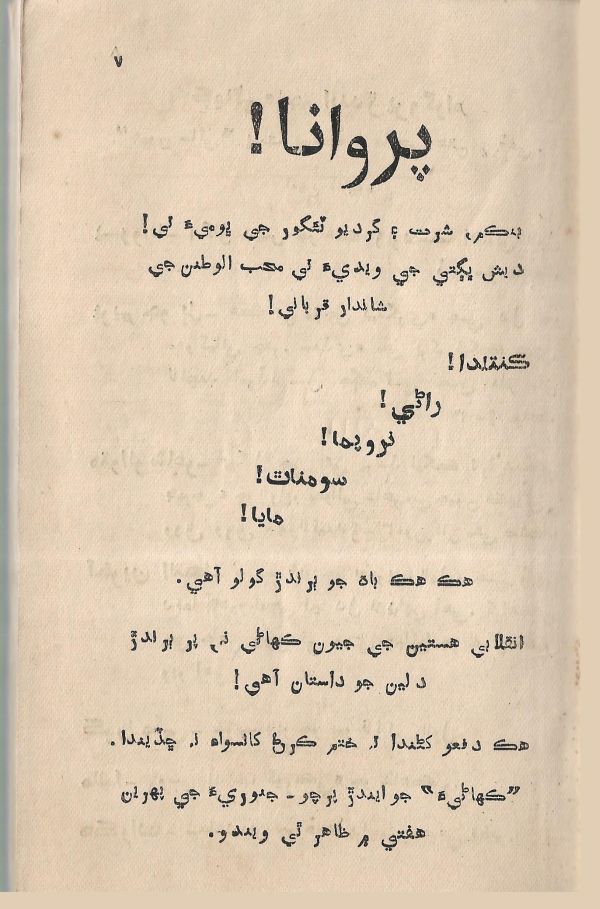 ٧
پروانا!
بنڪم، شرت ۽ گرديو ٽئگور جي ڀوميءَ تي!
ديش ڀڳتي جي ويديءَ تي محب الوطنن جي
شاندار قرباني!
ڪنتلا!
راڻي!
نروپما!
سومنات!
مايا!
هڪ هڪ باه جو ٻرندڙ گولو آهي.
انقلابي هستين جي جيون ڪهاڻي نہ، پر ٻرندڙ
دلين جو داستان آهي!
هڪ دفعو کڻندا تہ ختم ڪرڻ کانسواءِ نہ ڇڏيندا.
”ڪهاڻيءَ“ جو ايندڙ پرچو - جنوريءَ جي پهرين
هفتي ۾ ظاهر ٿي ويندو.